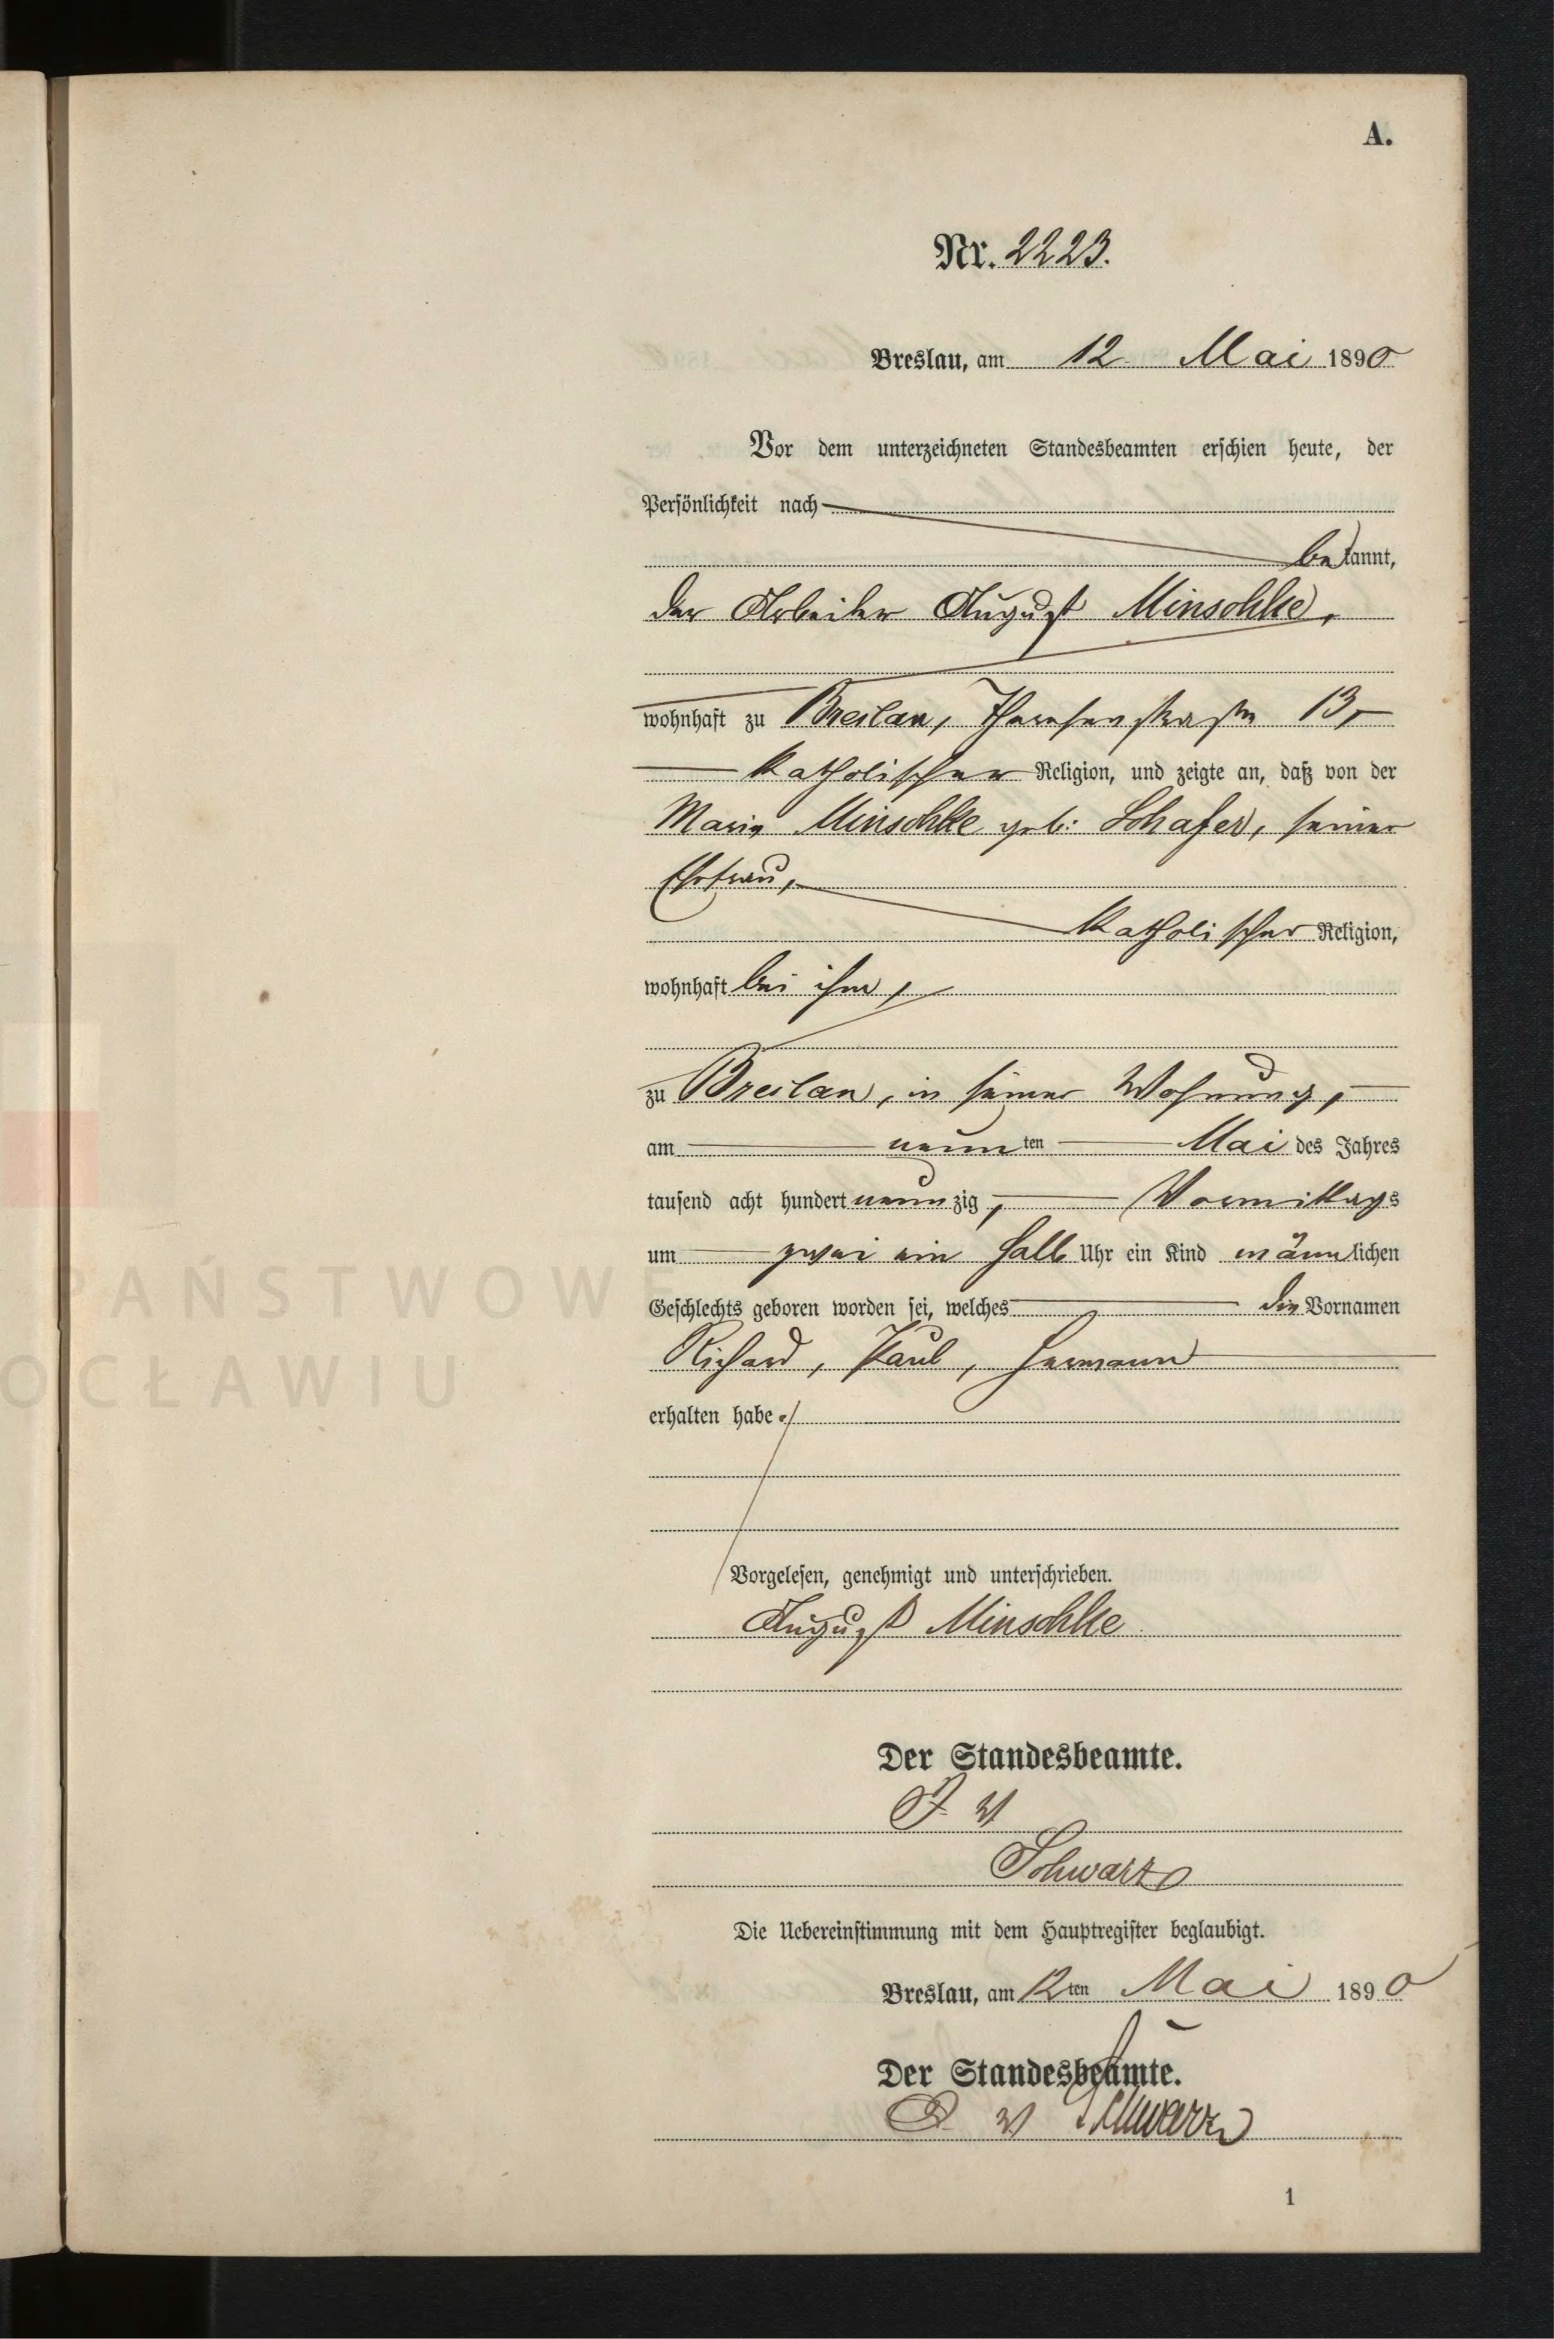 A.
Nr. 2223.
Breslau, am 12. Mai 1890
Vor dem unterzeichneten Standesbeamten erschien heute, der
Persönlichkeit nach
bekannt,
der Arbeiter August Minschke,
wohnhaft zu Breslau, Theresenstraße 13,
katholischer Religion, und zeigte an, daß von der
Maria Minschke geb: Schafer, seiner
Ehefrau,
katholischer Religion,
wohnhaft bei ihm,
zu Breslau, in seiner Wohnung,
am neunten Mai des Jahres
tausend acht hundert neunzig, Vormittags
um zwei ein halb Uhr ein Kind männlichen
Geschlechts geboren worden sei, welches die Vornamen
Richard, Paul, Hermann
erhalten habe.
Vorgelesen, genehmigt und unterschrieben.
August Minschke
Der Standesbeamte.
J. V
Schwarz
Die Uebereinstimmung mit dem Hauptregister beglaubigt.
Breslau, am 12ten Mai 1890
Der Standesbeamte.
J. V Schwarz
1
PAŃSTWOWE
OCŁAWIU